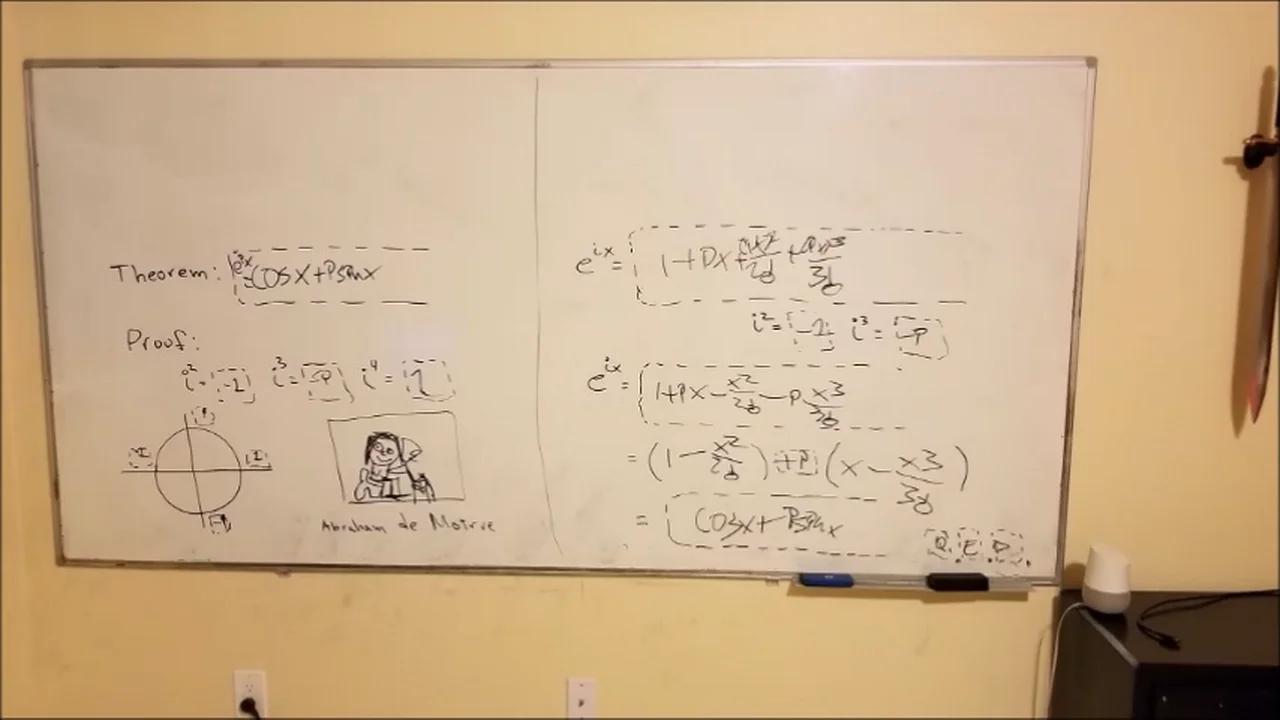 Theorem: e^ix = cosx+isinx
Proof:
i² = -1 i³ = -i i⁴ = 1
i
-1 1
-i
Abraham de Moirve
e^ix = 1+ix+
i² = -1 i³ = -i
e^ix = 1+ix-x²/2!-i x³/3!
= (1-x²/2!) +i (x-x³/3!)
= cosx+isinx
Q.E.D.